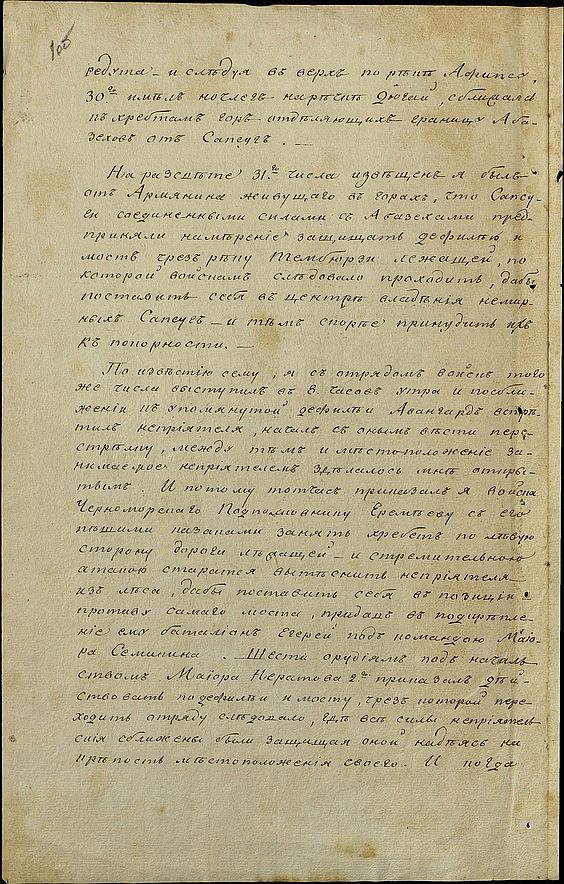 105
редута – и слѣдуя въ верхъ по рѣкѣ Афипсу,
30.го имѣлъ ночлегъ на рѣчкѣ Дюгай, сближаясь
къ хребтамъ горъ отдѣляющихъ границу Аба-
зеховъ отъ Сапсугъ. —
На разсвѣте 31.го числа извѣщенъ я былъ
отъ Армянина живущаго въ горахъ, что Сапсу-
ги соединенными силами съ Абазехами пред-
приняли намѣреніе защищать дефилѣю и
мостъ чрезъ рѣку Тембюрзи лежащей, по
которой войскамъ слѣдовало проходить, дабы
поставить себя въ центрѣ владѣнія немир-
ныхъ Сапсугъ – и тѣмъ скорѣе принудить ихъ
къ покорности. —
По извѣстію сему, я съ отрядомъ войскъ того
же числа выступилъ въ 8. часовъ утра и по сбли-
женіи къ упомянутой дефилѣи Авангардъ встрѣ-
тилъ непріятеля, началъ съ онымъ вѣсти пере-
стрѣлку, между тѣмъ и мѣстоположеніе за-
нимаемое непріятелемъ здѣлалось мнѣ откры-
тымъ. И потому тотчасъ приказалъ я войска
Черноморскаго Подполковнику Еремѣеву съ его
пѣшими казаками занять хребетъ по лѣвую
сторону дороги лѣжащей – и стремительною
атакою старатся вытѣснить непріятеля
изъ лѣса, дабы поставить себя въ позиціи
противу самаго моста, придавъ въ подкрѣпле-
ніе ему баталіонъ Егерей подъ командою Маіо-
ра Семикина. Шести орудіямъ подъ началь-
ствомъ Маіора Нератова 2.го приказалъ дѣй-
ствовать по дефилѣи и мосту, чрезъ которой пере-
ходить отряду слѣдовало, гдѣ всѣ силы непріятель-
скія сближены были защищая оной надѣясь на
крѣпость мѣстоположенія своего. И когда